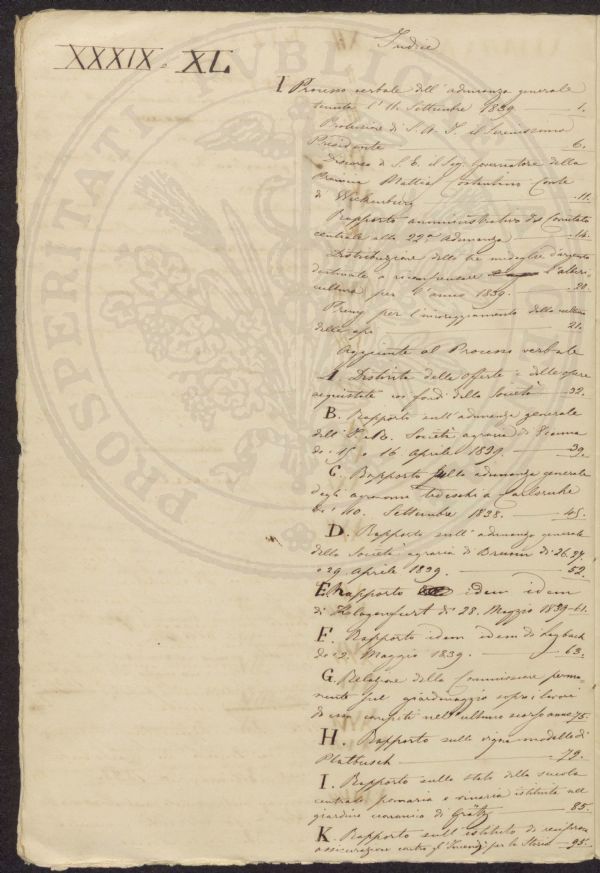 Indice
XXXIX. XL
I Processo verbale dell'adunanza generale
tenuta l'11 Settembre 1839 1.
Prolusione di S. A. I. il Serenissimo
Presidente 6.
Discorso di S. E. il Sig. Governatore della
Provincia Mattia Costantino Conte
di Wickenburg 11.
Rapporto amministrativo del Comitato
centrale alla 22a adunanza 14.
Distribuzione delle tre medaglie d'argento
destinate a ricompensare l'alberi
cultura per l'anno 1839. 20.
Premj per l'incoraggiamento della cultura
delle api 21.
Aggiunte al Processo verbale
A. Distinta delle offerte e delle opere
acquistate coi fondi della Società 32.
B. Rapporto sull'adunanza generale
dell'I. R. Società agraria di Vienna
di 15 e 16 Aprile 1839. 39.
C. Rapporto sulla adunanza generale
degli agronomi tedeschi a Carlsruhe
di 10. Settembre 1838. 45.
D. Rapporto sull'adunanza generale
della Società agraria di Brunn di 26. 27.
e 29. Aprile 1839. 52.
E. Rapporto idem idem
di Klagenfurt di 28. Maggio 1839 61.
F. Rapporto idem idem di Laybach
di 2. Maggio 1839. 63.
G. Relazione della Commissione perma-
nente sul giardinaggio sopra i lavori
da essa compiti nell'ultimo scorso anno 75.
H. Rapporto sulla vigna modello di
Platbusch 79.
I. Rapporto sullo stato della scuola
centrale pomaria e vinaria istituita nel
giardino di Grätz 85.
K. Rapporto sull'istituto di reciproca
assicurazione contro gl'Incendj per la Stiria 95.
PROSPERITATI PUBLICAE